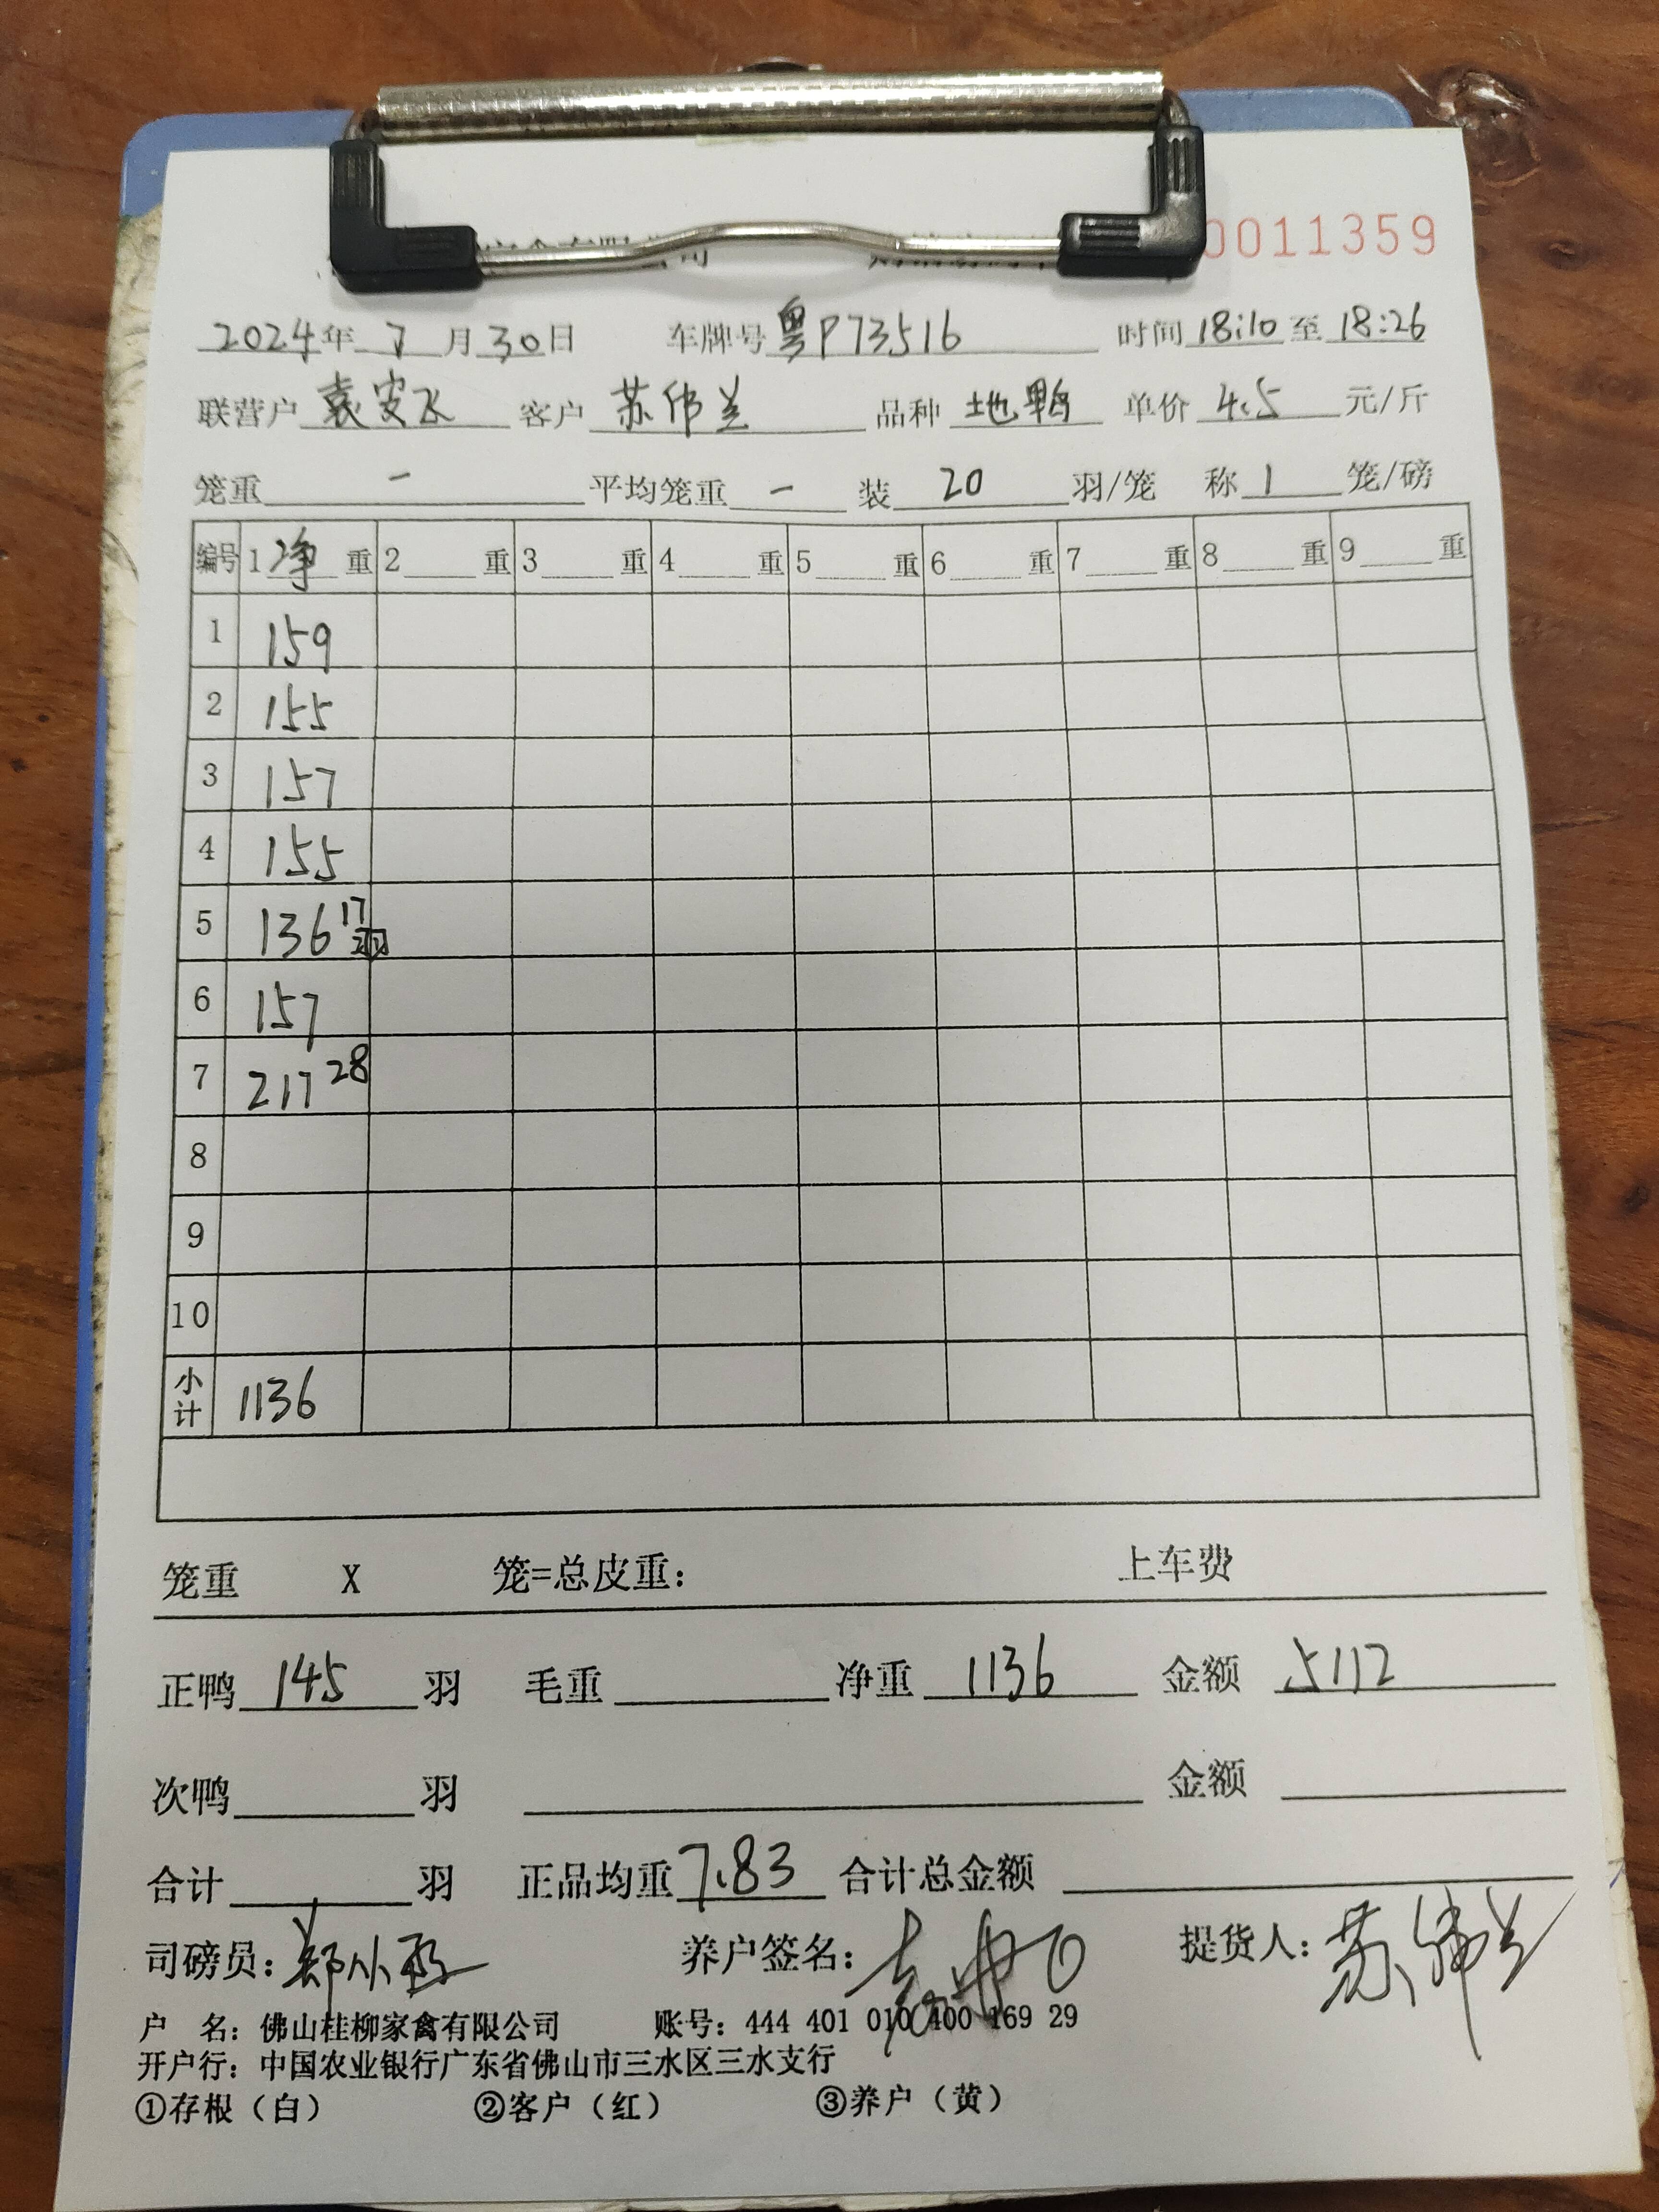 0011359
2024年 7月30日 车牌号 粤P73516 时间 18:10 至 18:26
联营户 袁安飞 客户 苏伟兰 品种 地鸭 单价 4.5 元/斤
笼重 一 平均笼重 一 装 20 羽/笼 称 1 笼/磅
编号 1 净 重 2 重 3 重 4 重 5 重 6 重 7 重 8 重 9 重
1 159
2 155
3 157
4 155
5 136 17羽
6 157
7 217 28
8
9
10
小计 1136
笼重 X 笼=总皮重: 上车费
正鸭 145 羽 毛重 净重 1136 金额 5112
次鸭 羽 金额
合计 羽 正品均重 7.83 合计总金额
司磅员: 养户签名: 提货人: 苏伟兰
户 名: 佛山桂柳家禽有限公司 账号: 444 401 010 400 169 29
开户行: 中国农业银行广东省佛山市三水区三水支行
①存根（白） ②客户（红） ③养户（黄）